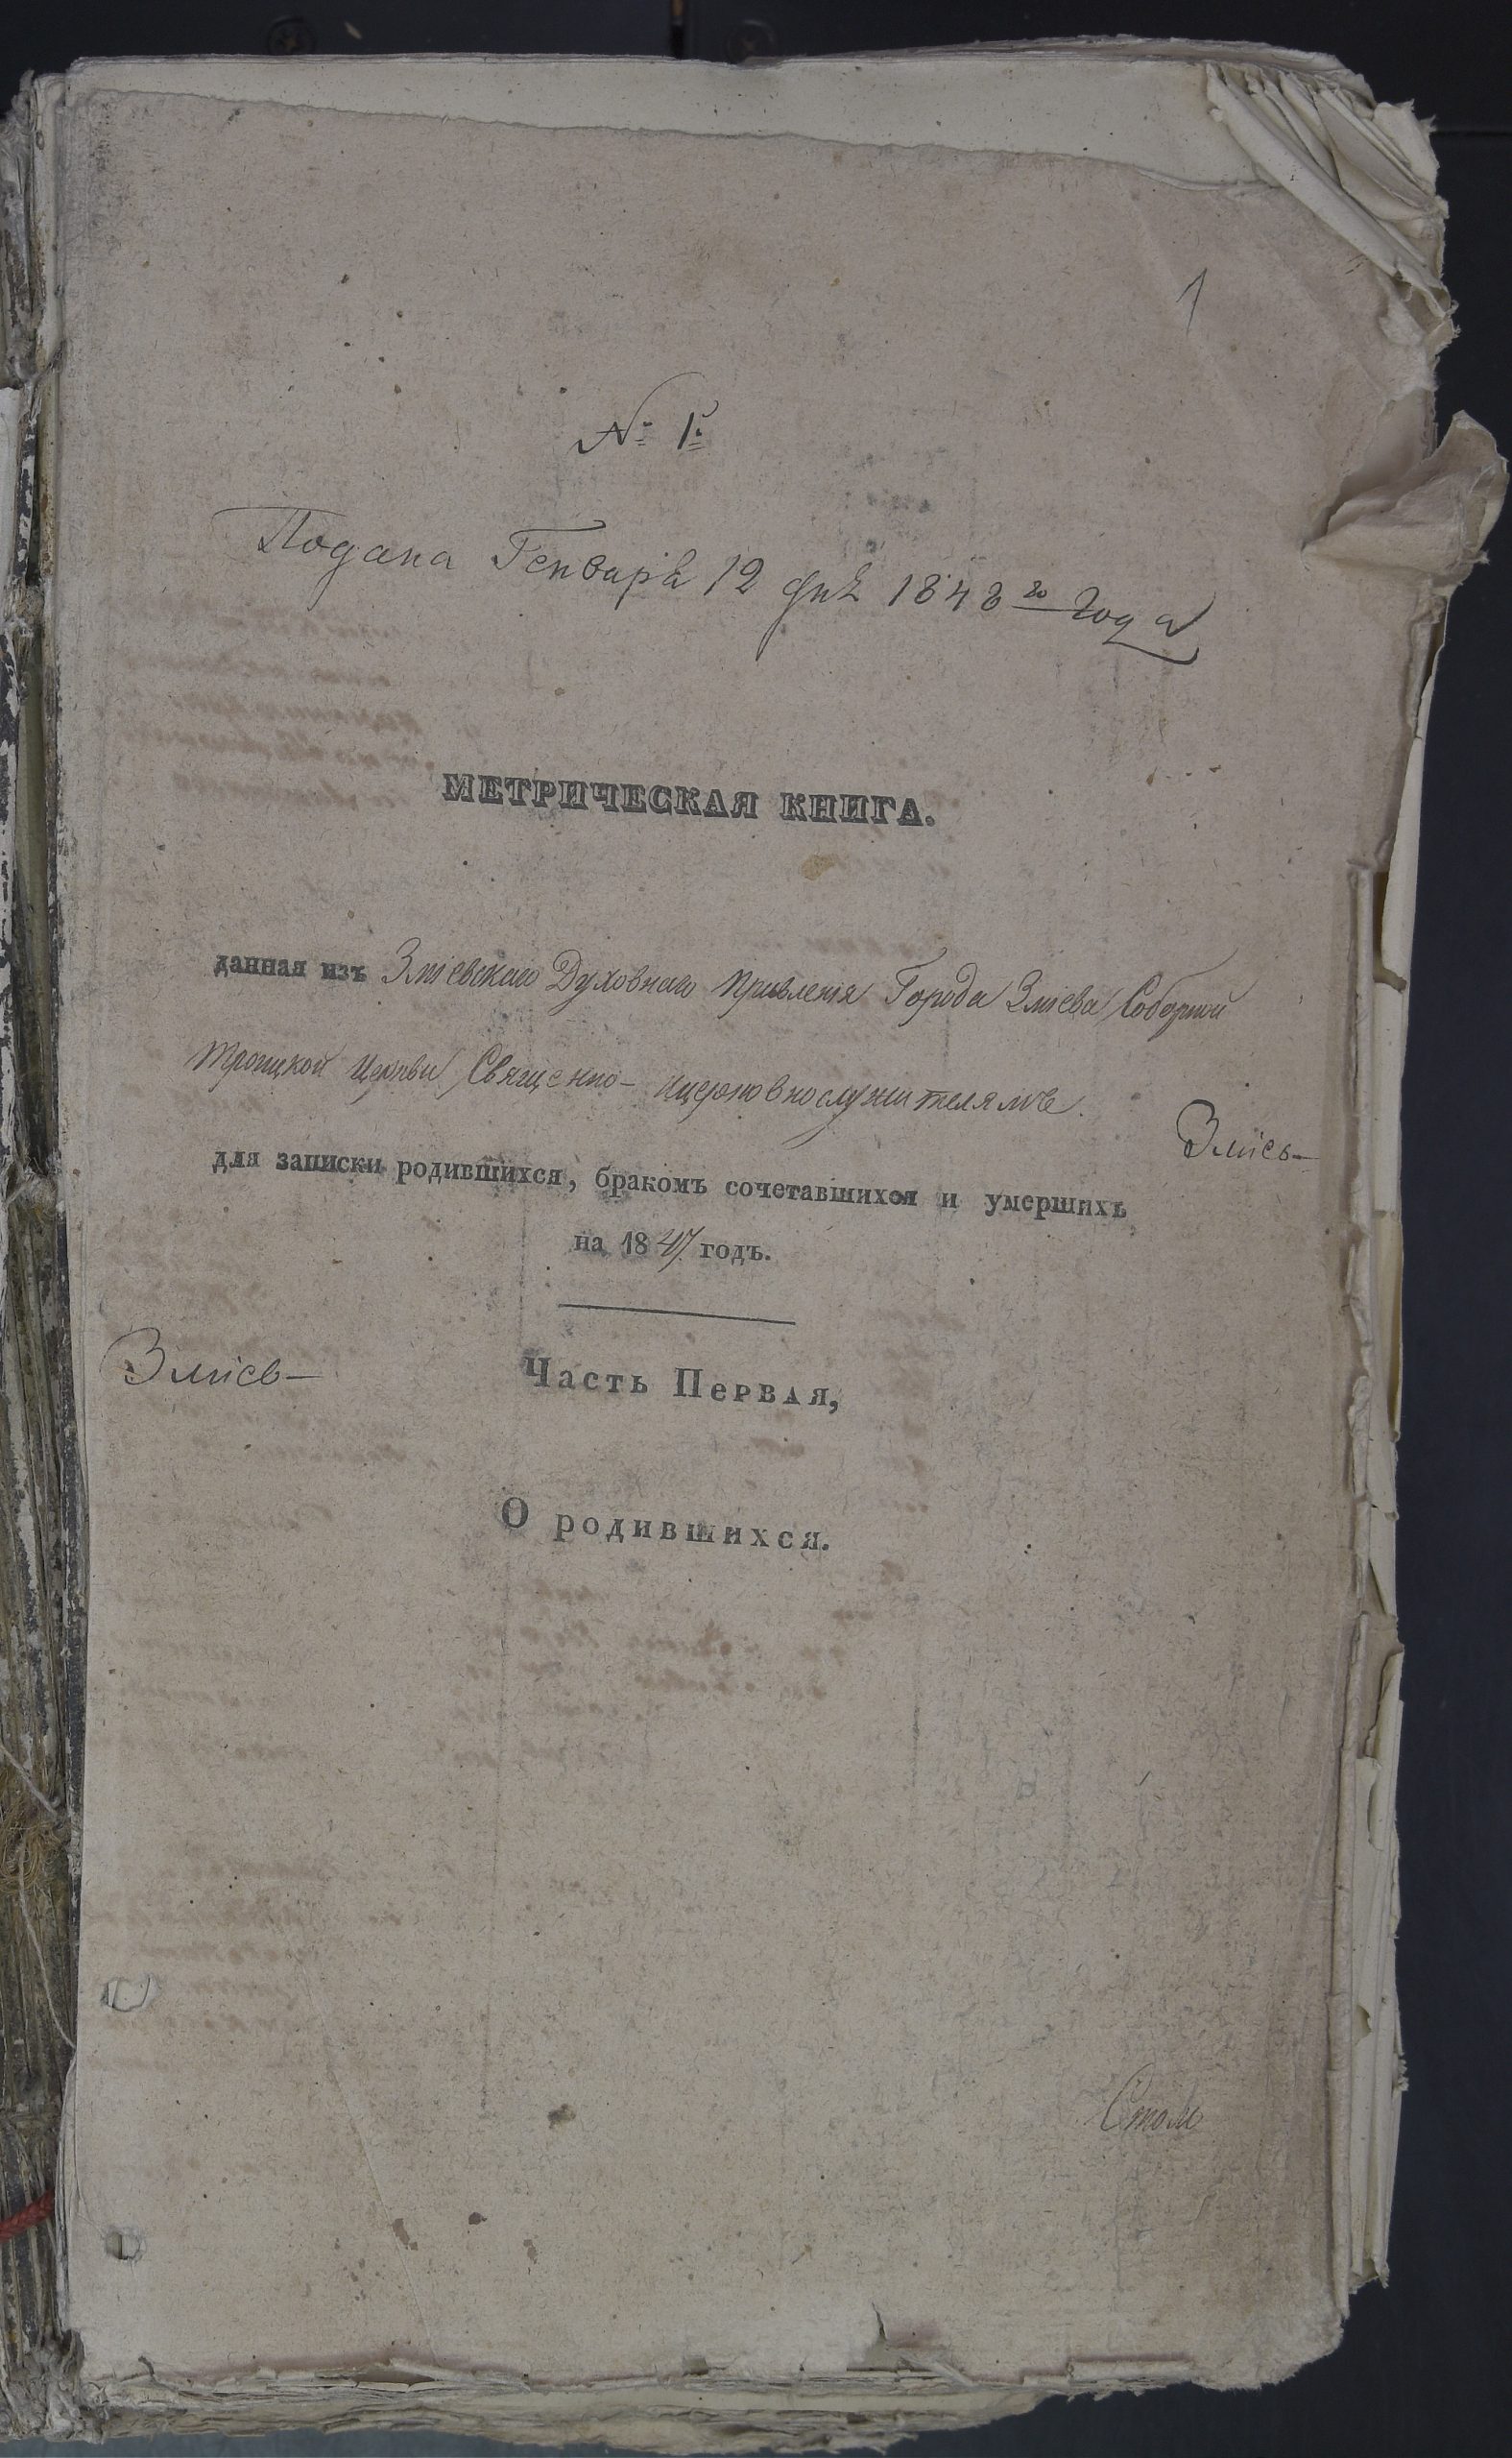 1
№ 1й
Подана Генваря 12 дня 1848го года
МЕТРИЧЕСКАЯ КНИГА.
данная изъ Зміевскаго Духовнаго Правленія Города Зміева Соборной
Троицкой Церкви Священно- ицерковнослужителямъ.
Зміев-
для записки родившихся, бракомъ сочетавшихся и умершихъ
на 1847 годъ.
Зміев-
Часть Первая,
О родившихся.